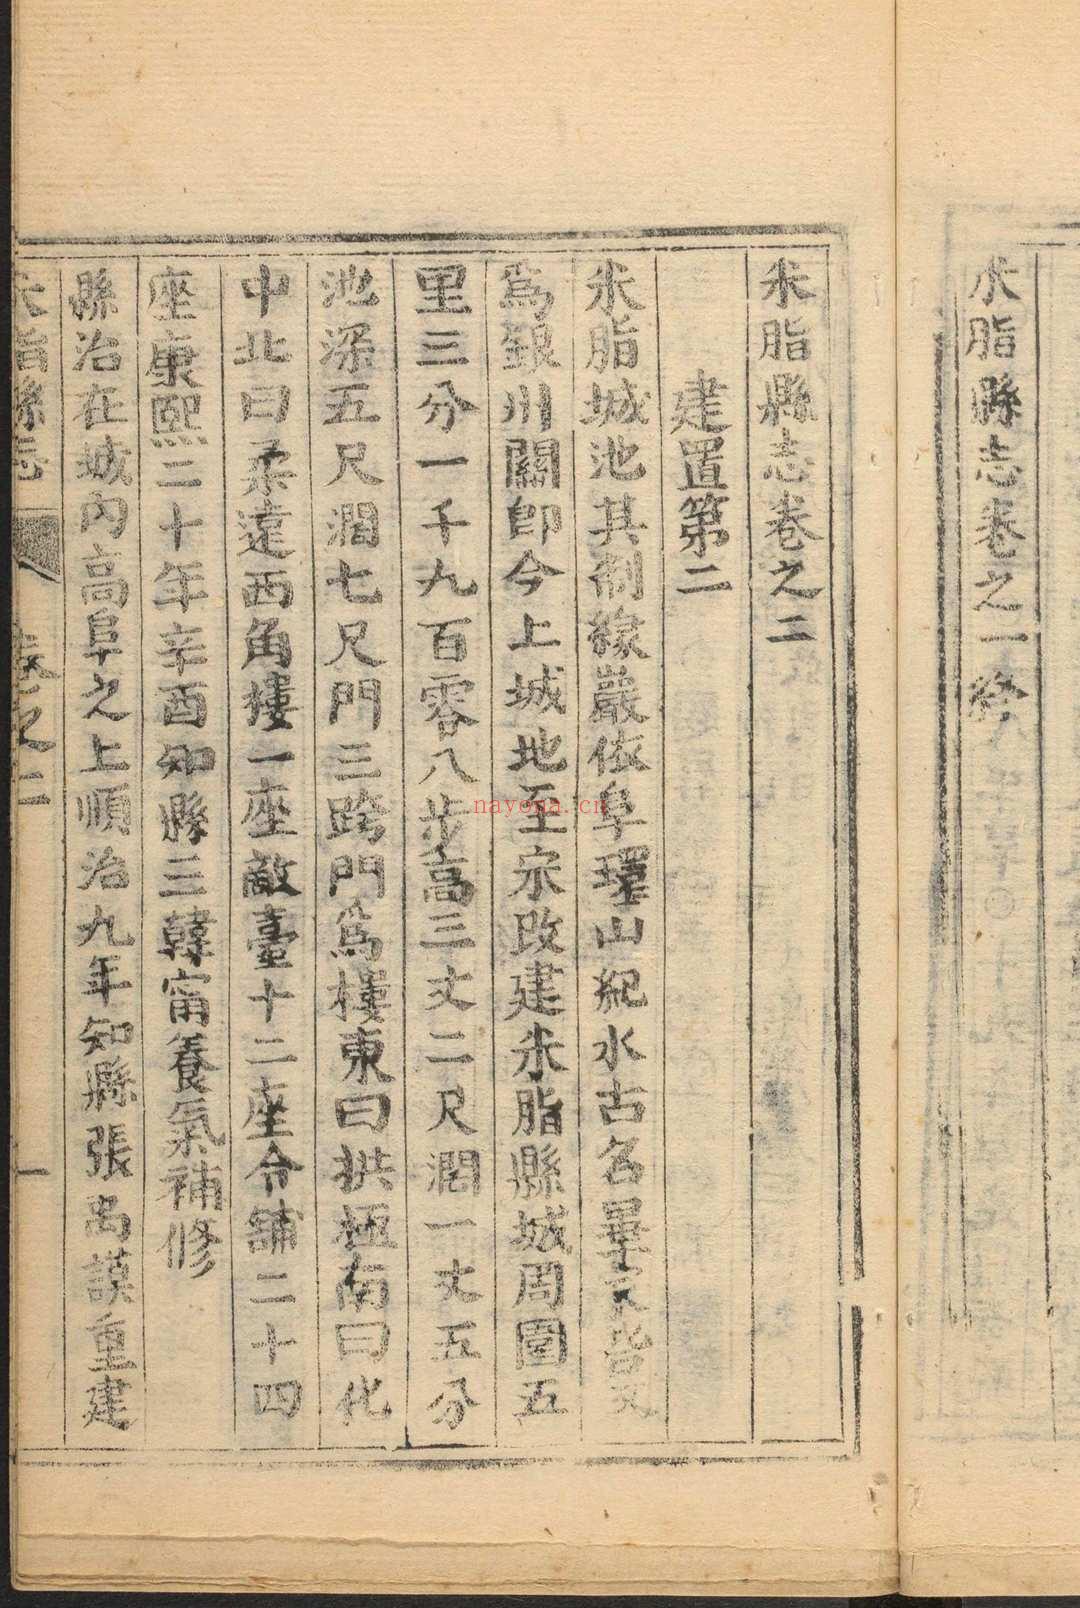 米脂縣志卷之一終
米脂縣志卷之二
建置第二
米脂城池其制稼嚴依阜環山紀水古名畢
為銀川關即今上城地至宋改建米脂縣城周圍五
里三分一千九百零八步高三丈二尺濶一丈五分
池深五尺濶七尺門三跨門為樓東曰拱極南曰化
中北曰柔遠西角樓一座敵臺十二座令舖二十四
座康熙二十年辛酉知縣三韓甯養氣補修
縣治在城內高阜之上順治九年知縣張禹謨重建
米脂縣志 卷之二 一
nayona.cn